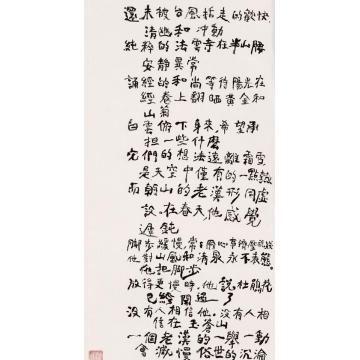 還未被台風掀走的歡快
清幽和沖動
純粹的法雲寺在半山腰
安靜異常
誦經的和尚等待陽光在
經卷上翻晒黃金和
山菊
白雲俯下身來，希望承
担一些什麼
它們的想法遠離霜雪
是天空中僅有的一點
而朝山的老漢形同虛
設。在春天他感覺
遲鈍
脚步緩慢，常用心事
他對山風和清泉永不表態。
他把脚步
放得更慢時，他說，杜鵑花
已經開過一了
沒有人相信他。沒有人相
信在玉蒼山
一個老漢的一舉一動
會減慢俗世的沉淪